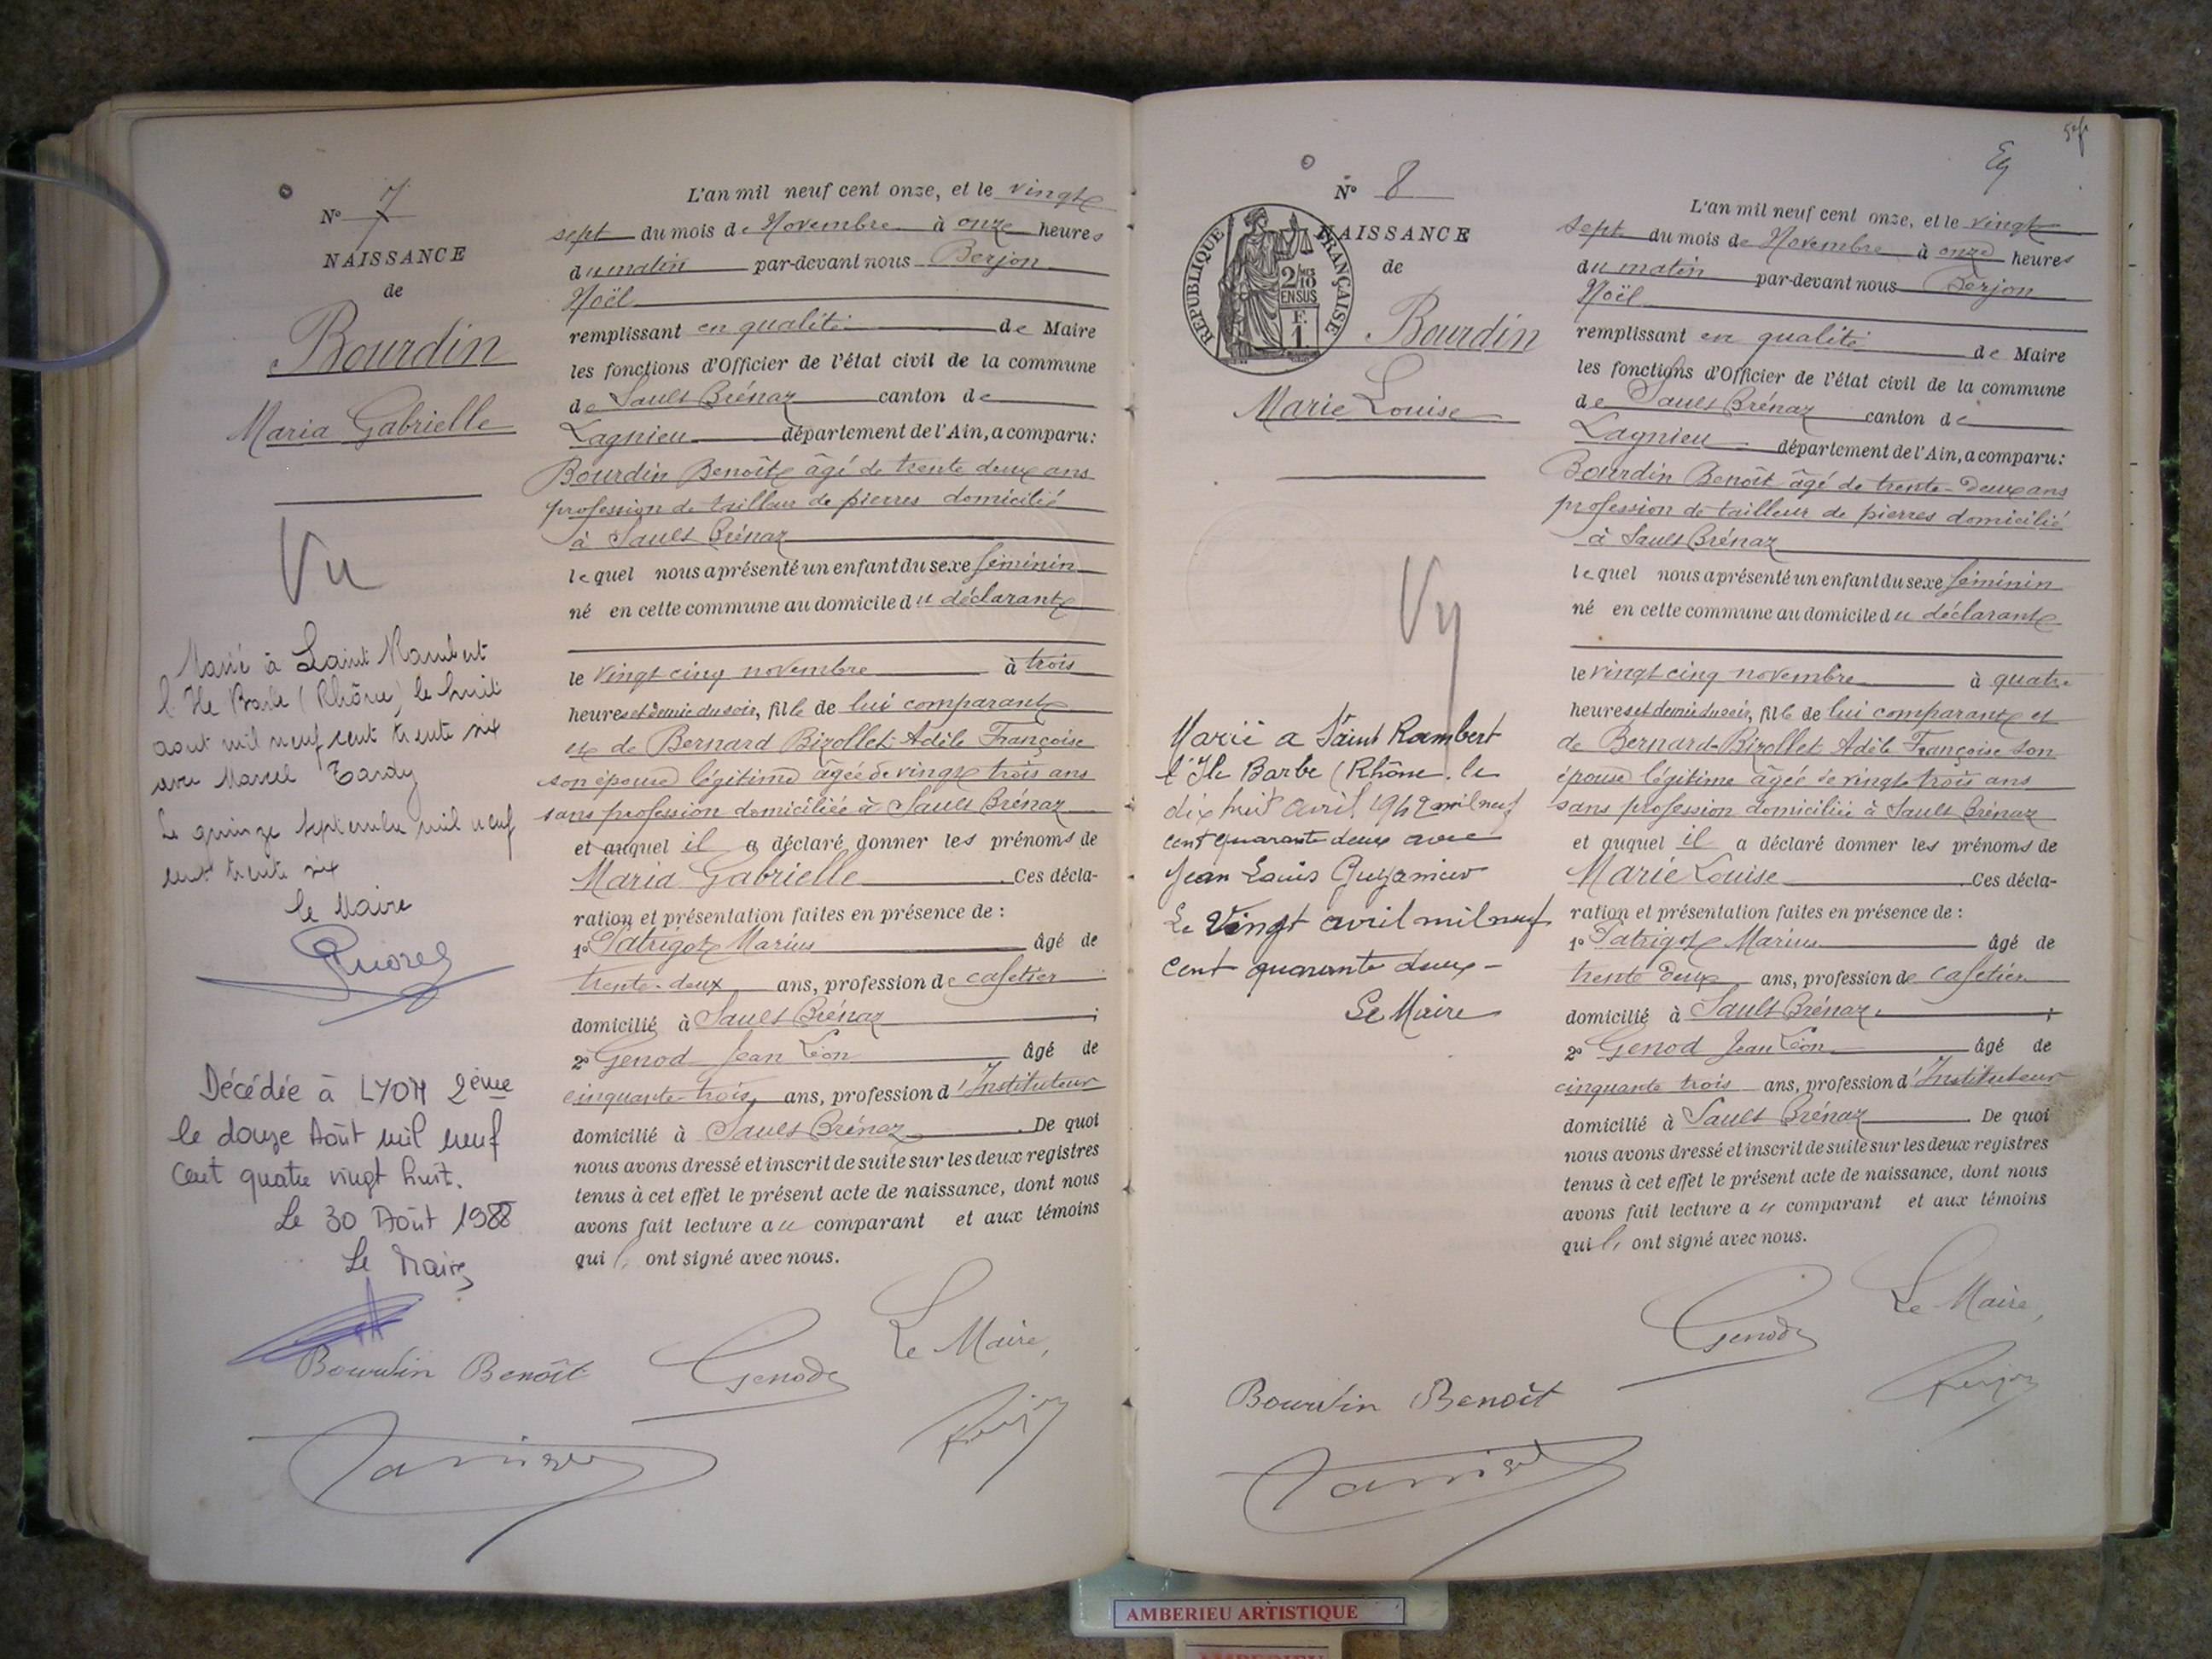 N° 7
NAISSANCE
de
Bourdin
Maria Gabrielle
Vu
Marié à Saint Rambert
l'Ile Barbe (Rhône) le huit
aout mil neuf cent trente six
avec Marcel Tardy
Le quinze septembre mil neuf
cent trente six
le Maire
Décédée à LYON 2ème
le douze Août mil neuf
cent quatre vingt huit.
Le 30 Août 1988
Le Maire
L'an mil neuf cent onze, et le vingt
sept du mois de Novembre à onze heures
du matin par-devant nous Berjon
Noël
remplissant en qualité de Maire
les fonctions d'Officier de l'état civil de la commune
de Sault Brénaz canton de
Lagnieu département de l'Ain, a comparu:
Bourdin Benoît âgé de trente deux ans
profession de tailleur de pierres domicilié
à Sault Brénaz
lequel nous a présenté un enfant du sexe féminin
né en cette commune au domicile du déclarant
le vingt cinq novembre à trois
heures et demie du soir, fille de lui comparant
et de Bernard Bizollet Adèle Françoise
son épouse légitime âgée de vingt trois ans
sans profession domiciliée à Sault Brénaz
et auquel il a déclaré donner les prénoms de
Maria Gabrielle Ces décla-
ration et présentation faites en présence de :
1° Patrigot Marius âgé de
trente-deux ans, profession de cafetier
domicilié à Sault Brénaz ;
2° Genod Jean Léon âgé de
cinquante-trois ans, profession d'Instituteur
domicilié à Sault Brénaz. De quoi
nous avons dressé et inscrit de suite sur les deux registres
tenus à cet effet le présent acte de naissance, dont nous
avons fait lecture au comparant et aux témoins
qui ont signé avec nous.
Le Maire,
Bourdin Benoît Genod
N° 8
NAISSANCE
de
REPUBLIQUE FRANÇAISE
2/10 EN SUS
F. 1.
Bourdin
Marie Louise
Vu
Marié a Saint Rambert
l'Ile Barbe (Rhône. le
dix huit avril 1942 mil neuf
cent quarante deux avec
Jean Louis
Le Vingt avril mil neuf
cent quarante deux -
Le Maire
L'an mil neuf cent onze, et le vingt
sept du mois de Novembre à onze heures
du matin par-devant nous Berjon
Noël
remplissant en qualité de Maire
les fonctions d'Officier de l'état civil de la commune
de Sault Brénaz canton de
Lagnieu département de l'Ain, a comparu:
Bourdin Benoît âgé de trente-deux ans
profession de tailleur de pierres domicilié
à Sault Brénaz
lequel nous a présenté un enfant du sexe féminin
né en cette commune au domicile du déclarant
le vingt cinq novembre à quatre
heures et demie du soir, fille de lui comparant et
de Bernard-Bizollet Adèle Françoise son
épouse légitime âgée de vingt trois ans
sans profession domiciliée à Sault Brénaz
et auquel il a déclaré donner les prénoms de
Marie Louise Ces décla-
ration et présentation faites en présence de :
1° Patrigot Marius âgé de
trente deux ans, profession de cafetier
domicilié à Sault Brénaz. ;
2° Genod Jean Léon âgé de
cinquante trois ans, profession d'Instituteur
domicilié à Sault Brénaz. De quoi
nous avons dressé et inscrit de suite sur les deux registres
tenus à cet effet le présent acte de naissance, dont nous
avons fait lecture au comparant et aux témoins
qui ont signé avec nous.
Le Maire,
Genod
Bourdin Benoît
AMBERIEU ARTISTIQUE